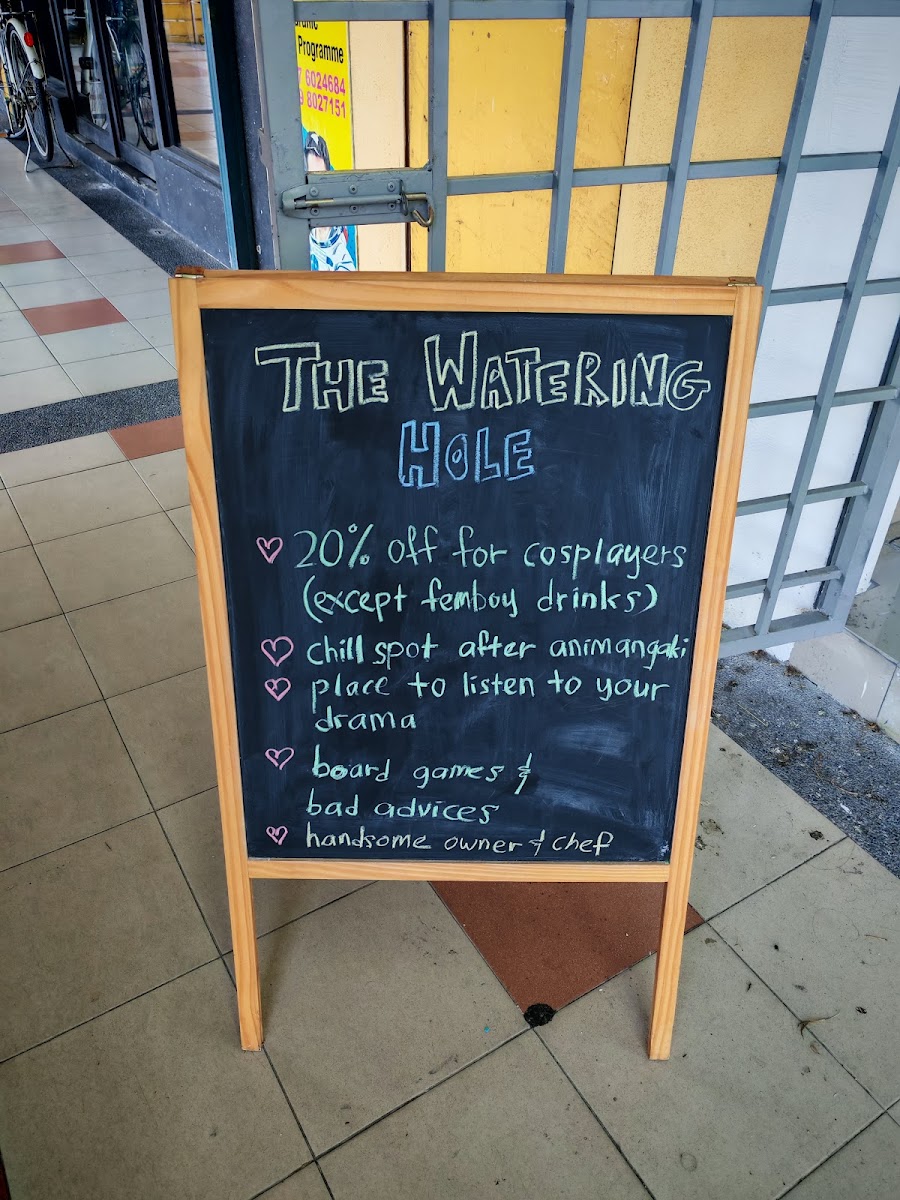 Programme
6024684
8027151
THE WATERING
HOLE
20% off for cosplayers
(except femboy drinks)
chill spot after animangaki
place to listen to your
drama
board games &
bad advices
handsome owner & chef